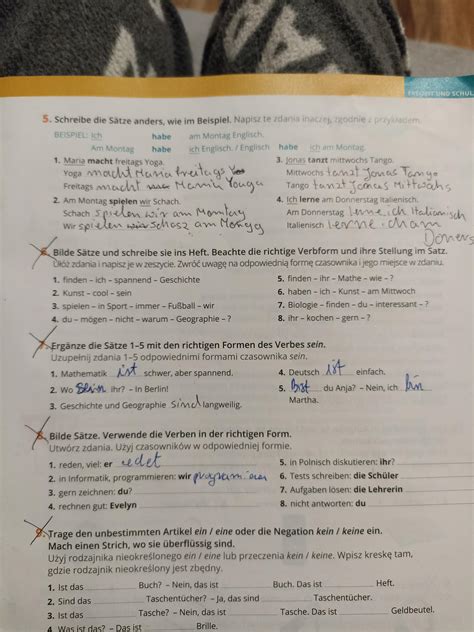 FREUNDE UND SCHULE
5. Schreibe die Sätze anders, wie im Beispiel. Napisz te zdania inaczej, zgodnie z przykładem.
BEISPIEL: Ich habe am Montag Englisch.
Am Montag habe ich Englisch. / Englisch habe ich am Montag.
1. Maria macht freitags Yoga.
Yoga macht Maria freitags
Freitags macht Maria Youga
2. Am Montag spielen wir Schach.
Schach spielen wir am Momtag
Wir spielen Schasz am Montag
3. Jonas tanzt mittwochs Tango.
Mittwochs tanzt Jonas Tango
Tango tanzt Jonas Mittwochs
4. Ich lerne am Donnerstag Italienisch.
Am Donnerstag lerne ich Italienisch
Italienisch lerne ich am
Doners
6. Bilde Sätze und schreibe sie ins Heft. Beachte die richtige Verbform und ihre Stellung im Satz.
Ułóż zdania i napisz je w zeszycie. Zwróć uwagę na odpowiednią formę czasownika i jego miejsce w zdaniu.
1. finden – ich – spannend – Geschichte
2. Kunst – cool – sein
3. spielen – in Sport – immer – Fußball – wir
4. du – mögen – nicht – warum – Geographie – ?
5. finden – ihr – Mathe – wie – ?
6. haben – ich – Kunst – am Mittwoch
7. Biologie – finden – du – interessant – ?
8. ihr – kochen – gern – ?
7. Ergänze die Sätze 1–5 mit den richtigen Formen des Verbes sein.
Uzupełnij zdania 1–5 odpowiednimi formami czasownika sein.
1. Mathematik ist schwer, aber spannend.
2. Wo ihr? – In Berlin!
3. Geschichte und Geographie sind langweilig.
4. Deutsch ist einfach.
5. Bist du Anja? – Nein, ich bin
Martha.
8. Bilde Sätze. Verwende die Verben in der richtigen Form.
Utwórz zdania. Użyj czasowników w odpowiedniej formie.
1. reden, viel: er redet
2. in Informatik, programmieren: wir programmieren
3. gern zeichnen: du?
4. rechnen gut: Evelyn
5. in Polnisch diskutieren: ihr?
6. Tests schreiben: die Schüler
7. Aufgaben lösen: die Lehrerin
8. nicht antworten: du
9. Trage den unbestimmten Artikel ein / eine oder die Negation kein / keine ein.
Mach einen Strich, wo sie überflüssig sind.
Użyj rodzajnika nieokreślonego ein / eine lub przeczenia kein / keine. Wpisz kreskę tam,
gdzie rodzajnik nieokreślony jest zbędny.
1. Ist das Buch? – Nein, das ist Buch. Das ist Heft.
2. Sind das Taschentücher? – Ja, das sind Taschentücher.
3. Ist das Tasche? – Nein, das ist Tasche. Das ist Geldbeutel.
4. Was ist das? – Das ist Brille.